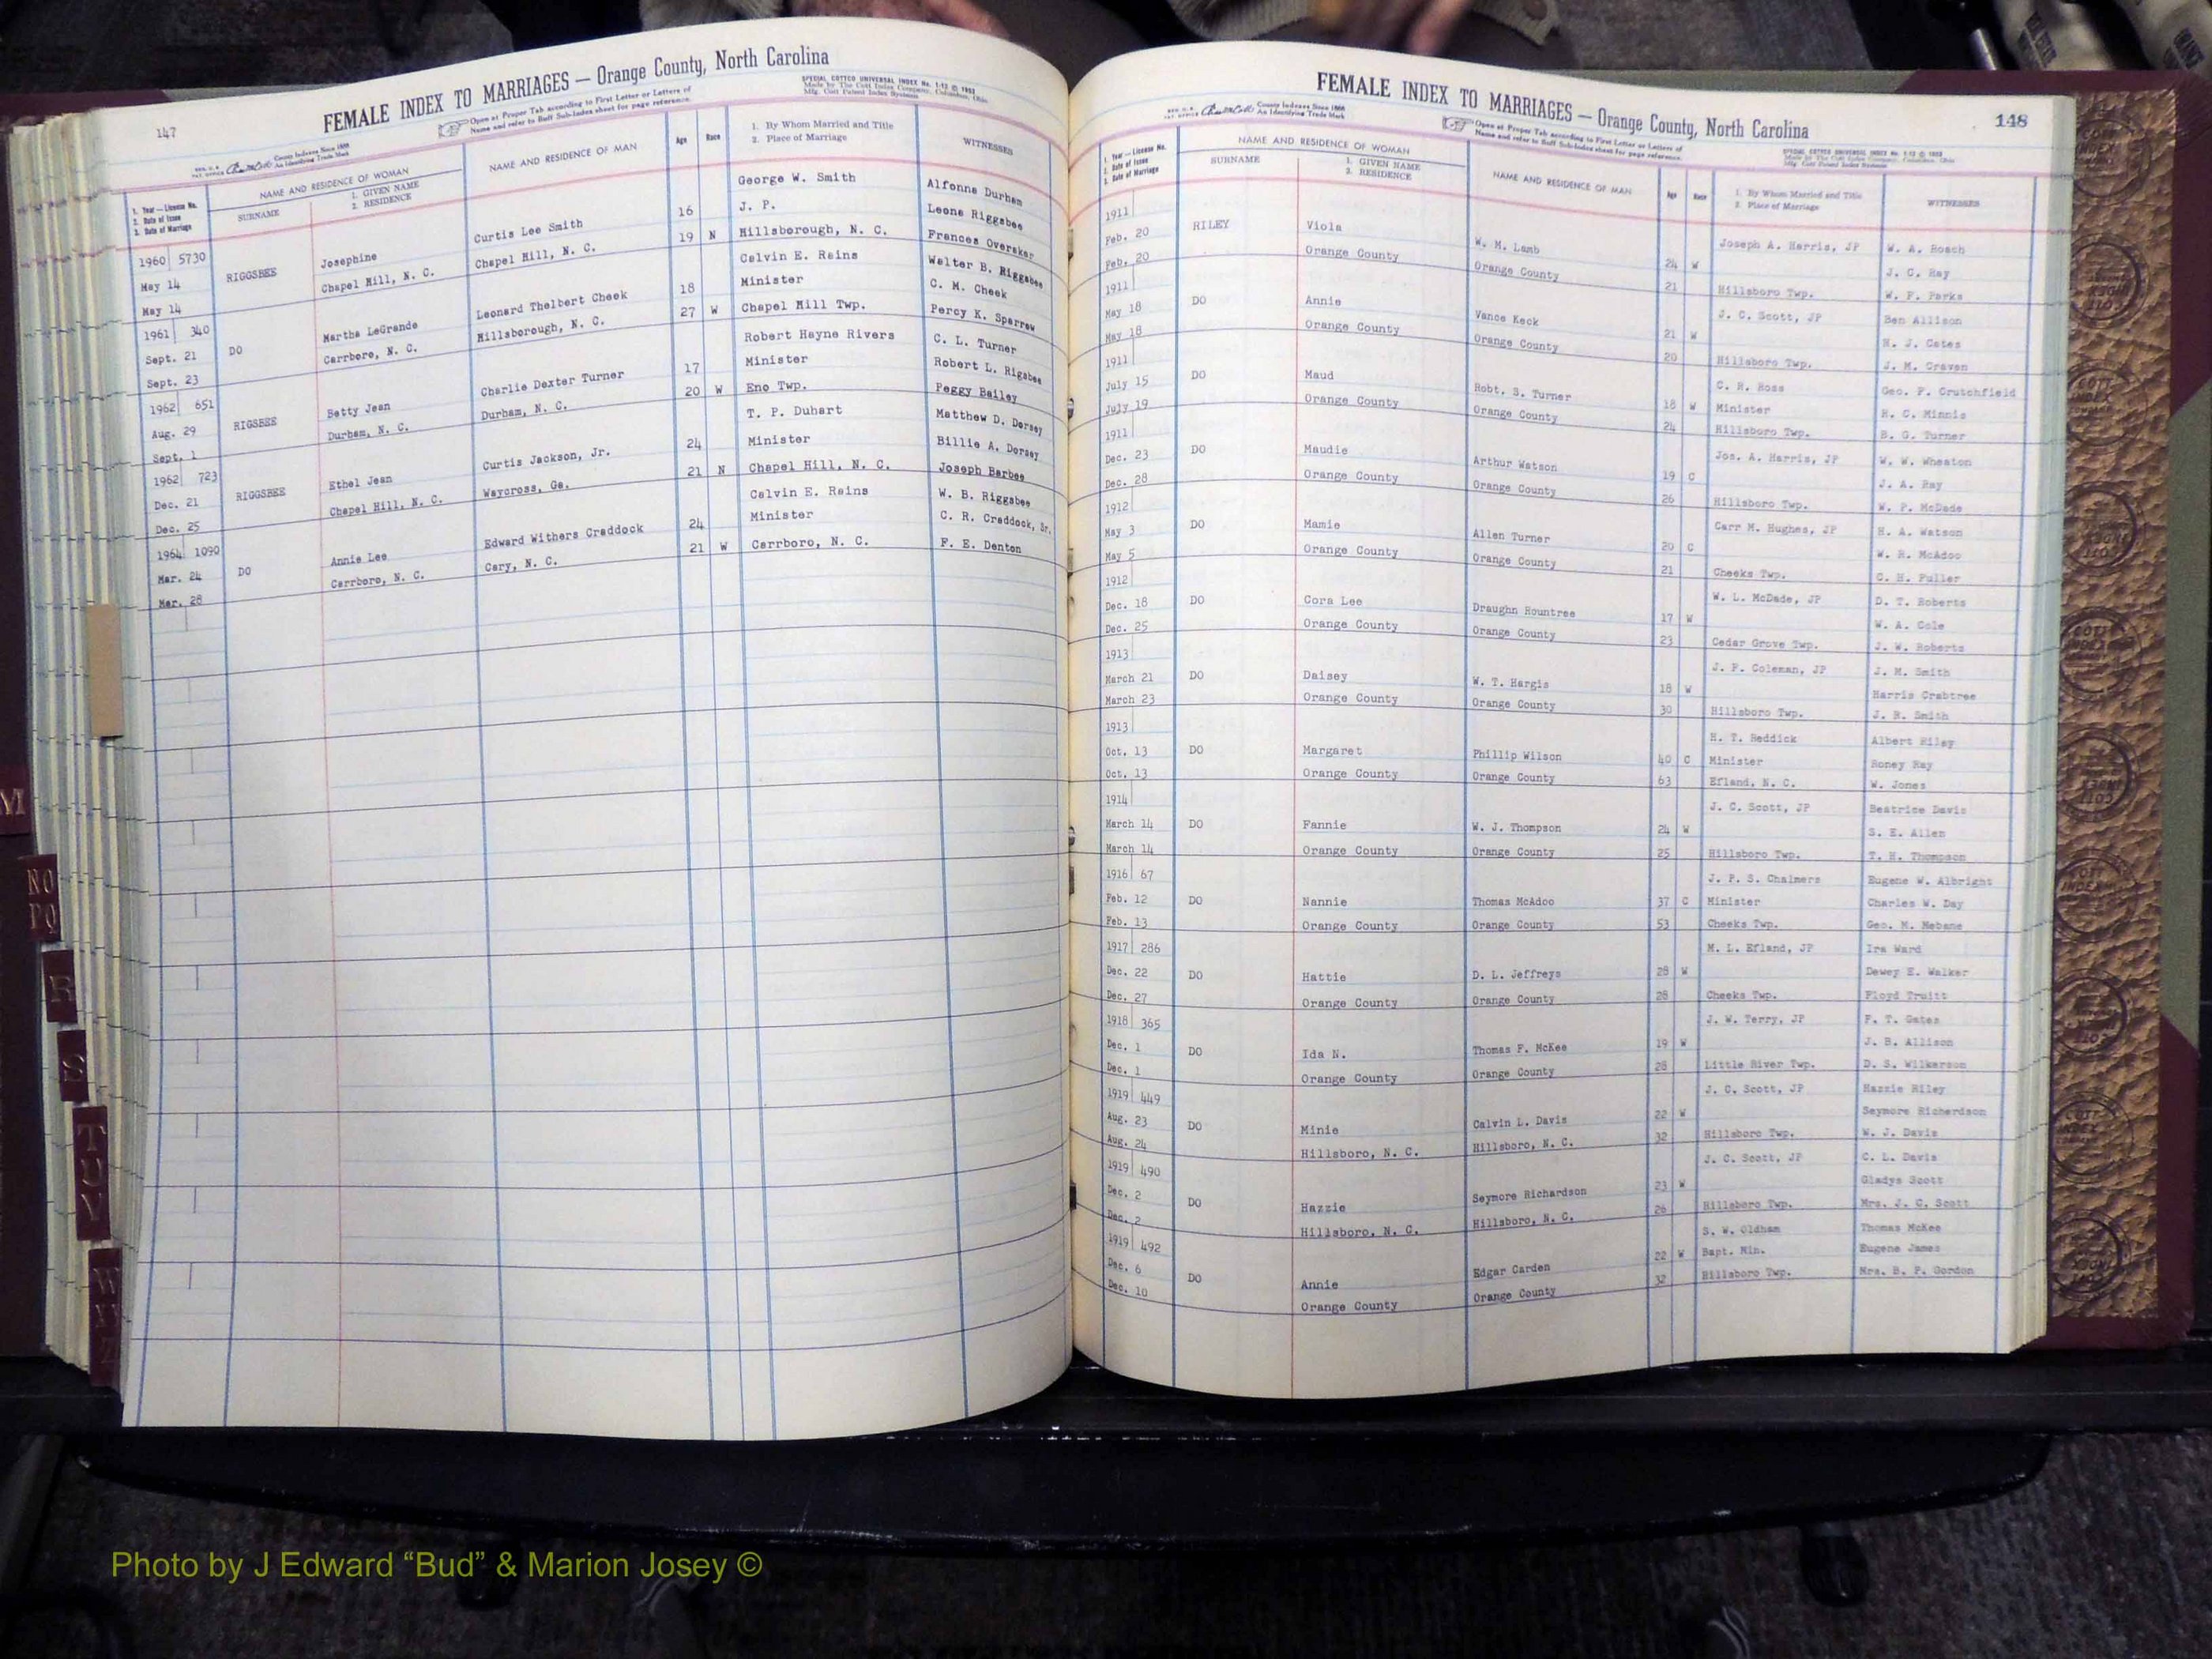 147
FEMALE INDEX TO MARRIAGES — Orange County, North Carolina
Open at Proper Tab according to First Letter or Letters of
Name and refer to Buff Sub-Index sheet for page reference.
SPECIAL COTTCO UNIVERSAL INDEX No. 1-12 © 1953
Made by The Cott Index Company, Columbus, Ohio
Mfg. Cott Patent Index Systems
County Indexes Since 1888
An Identifying Trade Mark
1. Year — License No.
2. Date of Issue
3. Date of Marriage
NAME AND RESIDENCE OF WOMAN
SURNAME
1. GIVEN NAME
2. RESIDENCE
NAME AND RESIDENCE OF MAN
Age
Race
1. By Whom Married and Title
2. Place of Marriage
WITNESSES
1960 5730 George W. Smith Alfonna Durham
May 14 RIGGSBEE Josephine Curtis Lee Smith 16 J. P. Leone Riggsbee
May 14 Chapel Hill, N. C. Chapel Hill, N. C. 19 N Hillsborough, N. C. Frances Oversker
1961 340 Calvin E. Rains Walter B. Riggsbee
Sept. 21 DO Martha LeGrande Leonard Thelbert Cheek 18 Minister C. M. Cheek
Sept. 23 Carrboro, N. C. Hillsborough, N. C. 27 W Chapel Hill Twp. Percy K. Sparrow
1962 651 Robert Hayne Rivers C. L. Turner
Aug. 29 RIGSBEE Betty Jean Charlie Dexter Turner 17 Minister Robert L. Rigsbee
Sept. 1 Durham, N. C. Durham, N. C. 20 W Eno Twp. Peggy Bailey
1962 723 T. P. Duhart Matthew D. Dorsey
Dec. 21 RIGGSBEE Ethel Jean Curtis Jackson, Jr. 24 Minister Billie A. Dorsey
Dec. 25 Chapel Hill, N. C. Waycross, Ga. 21 N Chapel Hill, N. C. Joseph Barbee
1964 1090 Calvin E. Rains W. B. Riggsbee
Mar. 24 DO Annie Lee Edward Withers Craddock 24 Minister C. R. Craddock, Sr.
Mar. 28 Carrboro, N. C. Cary, N. C. 21 W Carrboro, N. C. F. E. Denton
M
NO
PQ
R
S
T
U
V
W
148
FEMALE INDEX TO MARRIAGES — Orange County, North Carolina
County Indexes Since 1888
An Identifying Trade Mark
Open at Proper Tab according to First Letter or Letters of
Name and refer to Buff Sub-Index sheet for page reference.
SPECIAL COTTCO UNIVERSAL INDEX No. 1-12 © 1953
1. Year — License No.
2. Date of Issue
3. Date of Marriage
NAME AND RESIDENCE OF WOMAN
SURNAME
1. GIVEN NAME
2. RESIDENCE
NAME AND RESIDENCE OF MAN
Age
Race
1. By Whom Married and Title
2. Place of Marriage
WITNESSES
1911 Joseph A. Harris, JP W. A. Roach
Feb. 20 RILEY Viola W. M. Lamb 24 W J. C. Ray
Feb. 20 Orange County Orange County 21 Hillsboro Twp. W. F. Parks
1911 J. C. Scott, JP Ben Allison
May 18 DO Annie Vance Keck 21 W H. J. Cates
May 18 Orange County Orange County 20 Hillsboro Twp. J. M. Craven
1911 C. R. Ross Geo. F. Crutchfield
July 15 DO Maud Robt. S. Turner 18 W Minister H. C. Minnis
July 19 Orange County Orange County 24 Hillsboro Twp. B. G. Turner
1911 Jos. A. Harris, JP W. W. Wheaton
Dec. 23 DO Maudie Arthur Watson 19 C J. A. Ray
Dec. 28 Orange County Orange County 26 Hillsboro Twp. W. P. McDade
1912 Carr M. Hughes, JP H. A. Watson
May 3 DO Mamie Allen Turner 20 C W. R. McAdoo
May 5 Orange County Orange County 21 Cheeks Twp. C. H. Fuller
1912 W. L. McDade, JP D. T. Roberts
Dec. 18 DO Cora Lee Draughn Rountree 17 W W. A. Cole
Dec. 25 Orange County Orange County 23 Cedar Grove Twp. J. W. Roberts
1913 J. P. Coleman, JP J. M. Smith
March 21 DO Daisey W. T. Hargis 18 W Harris Crabtree
March 23 Orange County Orange County 30 Hillsboro Twp. J. R. Smith
1913 H. T. Reddick Albert Riley
Oct. 13 DO Margaret Phillip Wilson 40 C Minister Roney Ray
Oct. 13 Orange County Orange County 63 Efland, N. C. W. Jones
1914 J. C. Scott, JP Beatrice Davis
March 14 DO Fannie W. J. Thompson 24 W S. E. Allen
March 14 Orange County Orange County 25 Hillsboro Twp. T. H. Thompson
1916 67 J. P. S. Chalmers Eugene W. Albright
Feb. 12 DO Nannie Thomas McAdoo 37 C Minister Charles W. Day
Feb. 13 Orange County Orange County 53 Cheeks Twp. Geo. M. Mebane
1917 286 M. L. Efland, JP Ira Ward
Dec. 22 DO Hattie D. L. Jeffreys 28 W Dewey E. Walker
Dec. 27 Orange County Orange County 28 Cheeks Twp. Floyd Truitt
1918 365 J. W. Terry, JP F. T. Gates
Dec. 1 DO Ida N. Thomas F. McKee 19 W J. B. Allison
Dec. 1 Orange County Orange County 28 Little River Twp. D. S. Wilkerson
1919 449 J. C. Scott, JP Hazzie Riley
Aug. 23 DO Minie Calvin L. Davis 22 W Seymore Richardson
Aug. 24 Hillsboro, N. C. Hillsboro, N. C. 32 Hillsboro Twp. W. J. Davis
1919 490 J. C. Scott, JP C. L. Davis
Dec. 2 DO Hazzie Seymore Richardson 23 W Gladys Scott
Dec. 2 Hillsboro, N. C. Hillsboro, N. C. 26 Hillsboro Twp. Mrs. J. C. Scott
1919 492 S. W. Oldham Thomas McKee
Dec. 6 DO Annie Edgar Carden 22 W Bapt. Min. Eugene James
Dec. 10 Orange County Orange County 32 Hillsboro Twp. Mrs. B. P. Gordon
Photo by J Edward “Bud” & Marion Josey ©